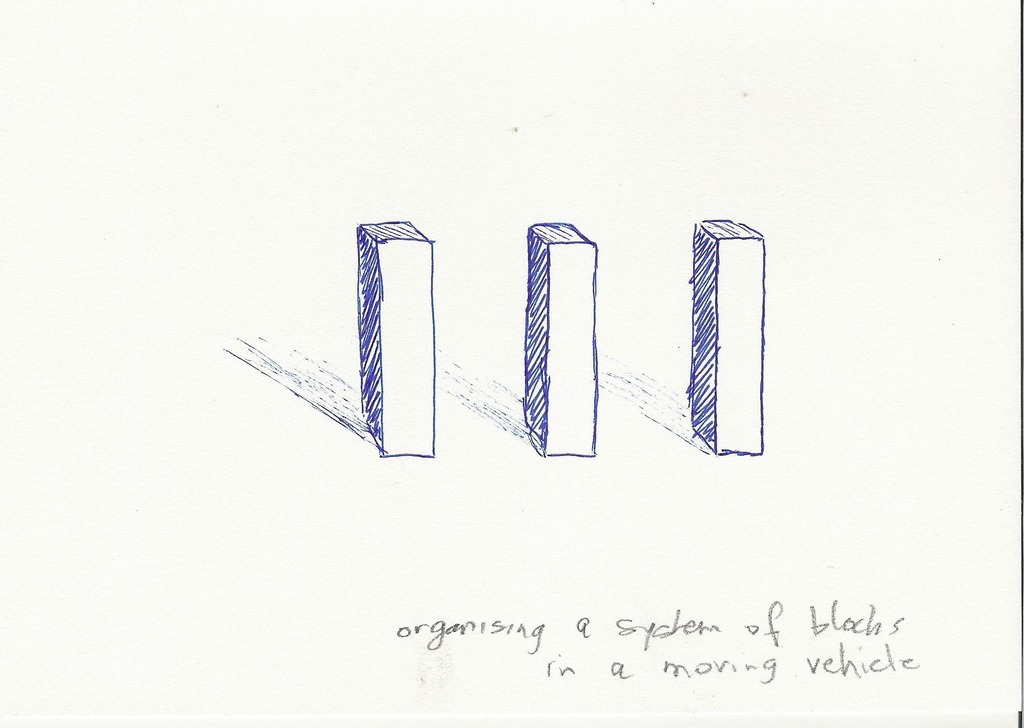 organising a system of blocks
in a moving vehicle